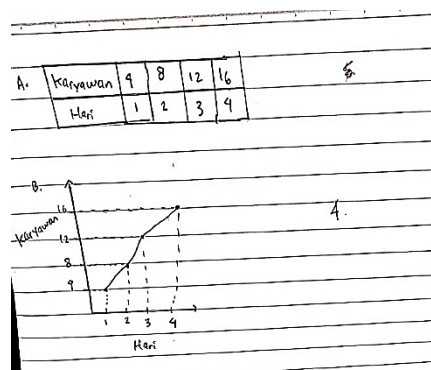 A. Karyawan 4 8 12 16
Hari 1 2 3 4
B.
Karyawan
16
12
8
4
1 2 3 4
Hari
4.